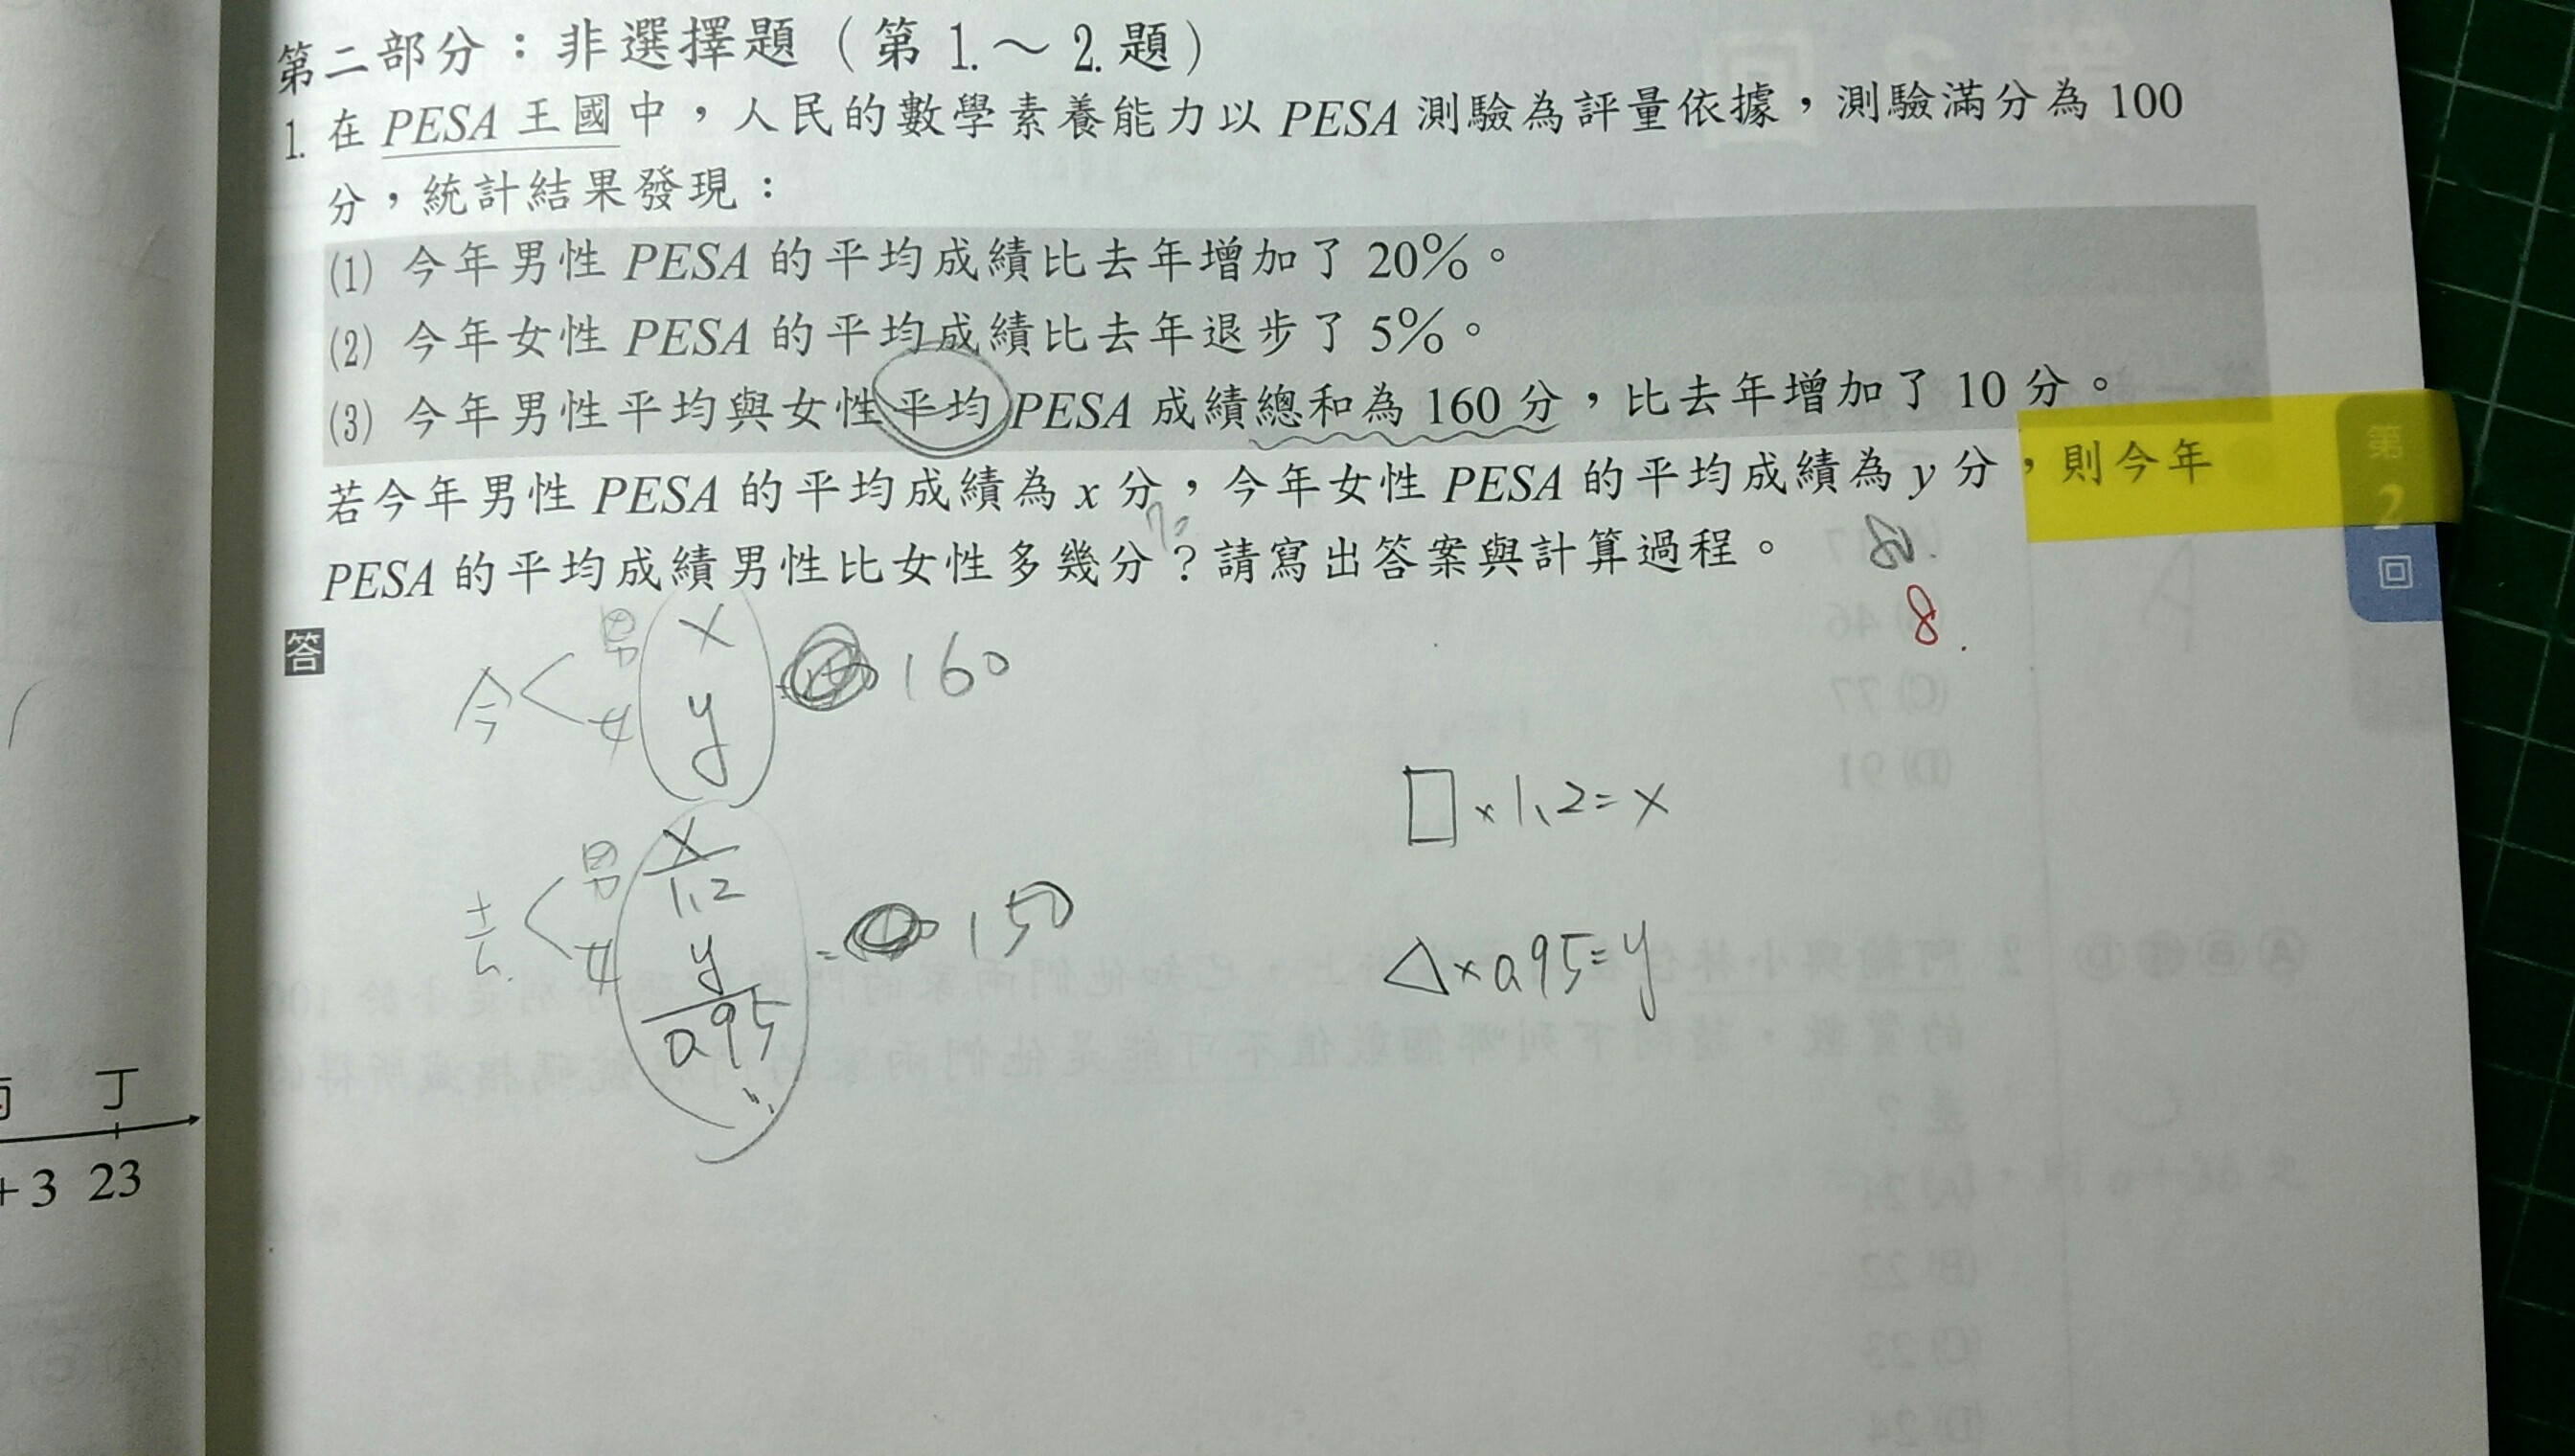 第二部分：非選擇題（第1.～2.題）
1. 在 PESA 王國中，人民的數學素養能力以 PESA 測驗為評量依據，測驗滿分為 100
分，統計結果發現：
(1) 今年男性 PESA 的平均成績比去年增加了 20%。
(2) 今年女性 PESA 的平均成績比去年退步了 5%。
(3) 今年男性平均與女性平均 PESA 成績總和為 160 分，比去年增加了 10 分。
若今年男性 PESA 的平均成績為 x 分，今年女性 PESA 的平均成績為 y 分，則今年
PESA 的平均成績男性比女性多幾分？請寫出答案與計算過程。
第
2
回
8.
答
今 男 x
女 y
160
□×1.2=x
去 男 x/1.2
女 y/0.95
= 150
△×0.95=y
丁
+3 23